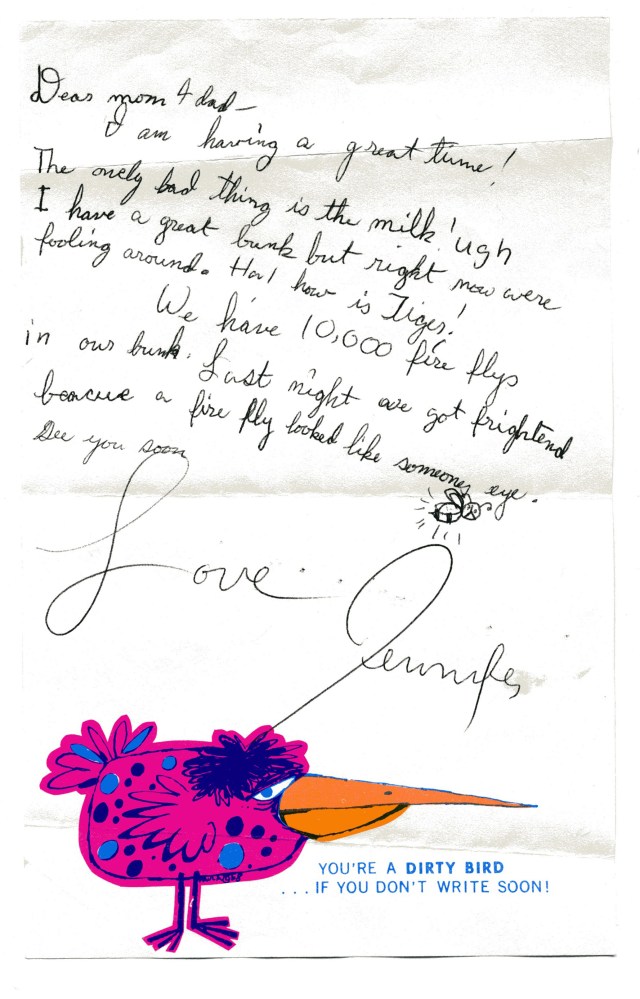 Dear mom & dad—
I am having a great time!
The onely bad thing is the milk! ugh
I have a great bunk but right now were
fooling around. Ha! how is Tiger!
We have 10,000 fire flys
in our bunk. Last night we got frightend
beacuse a fire fly looked like someones eye.
See you soon
Love
Jennifer
YOU'RE A DIRTY BIRD
...IF YOU DON'T WRITE SOON!